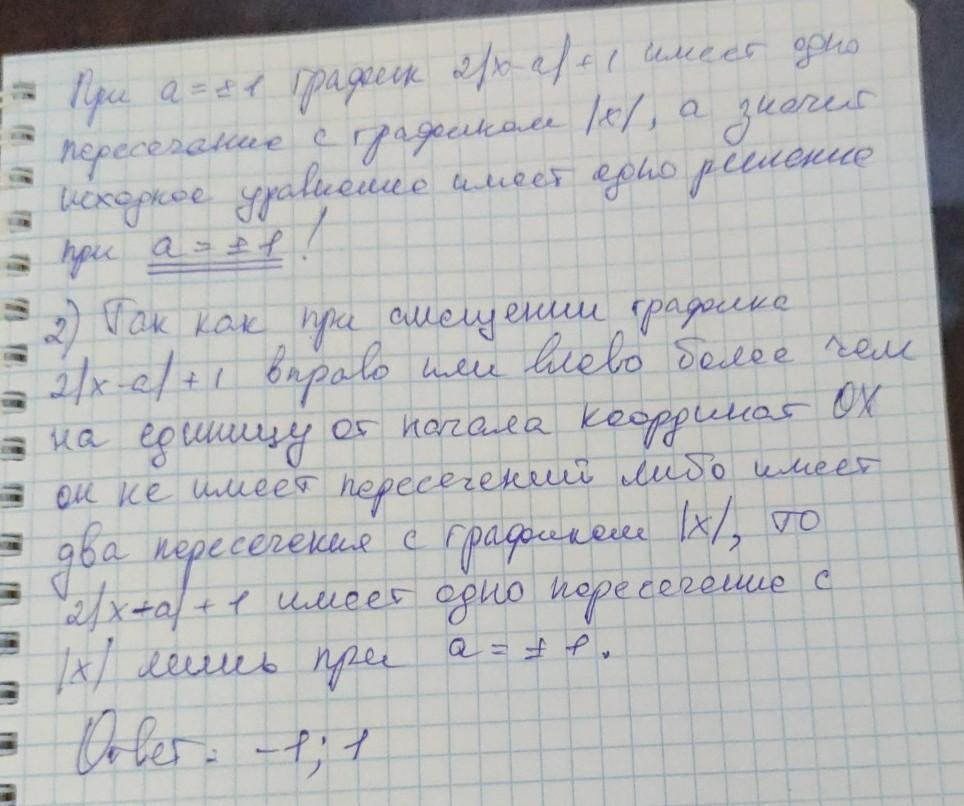 При a = ±1 график 2|x-a|+1 имеет одно
пересечение с графиком |x|, а значит
исходное уравнение имеет одно решение
при a = ±1!
2) Так как при смещении графика
2|x-a|+1 вправо или влево более чем
на единицу от начала координат OX
он не имеет пересечений либо имеет
два пересечения с графиком |x|, то
2|x+a|+1 имеет одно пересечение с
|x| лишь при a = ±1.
Ответ: -1; 1